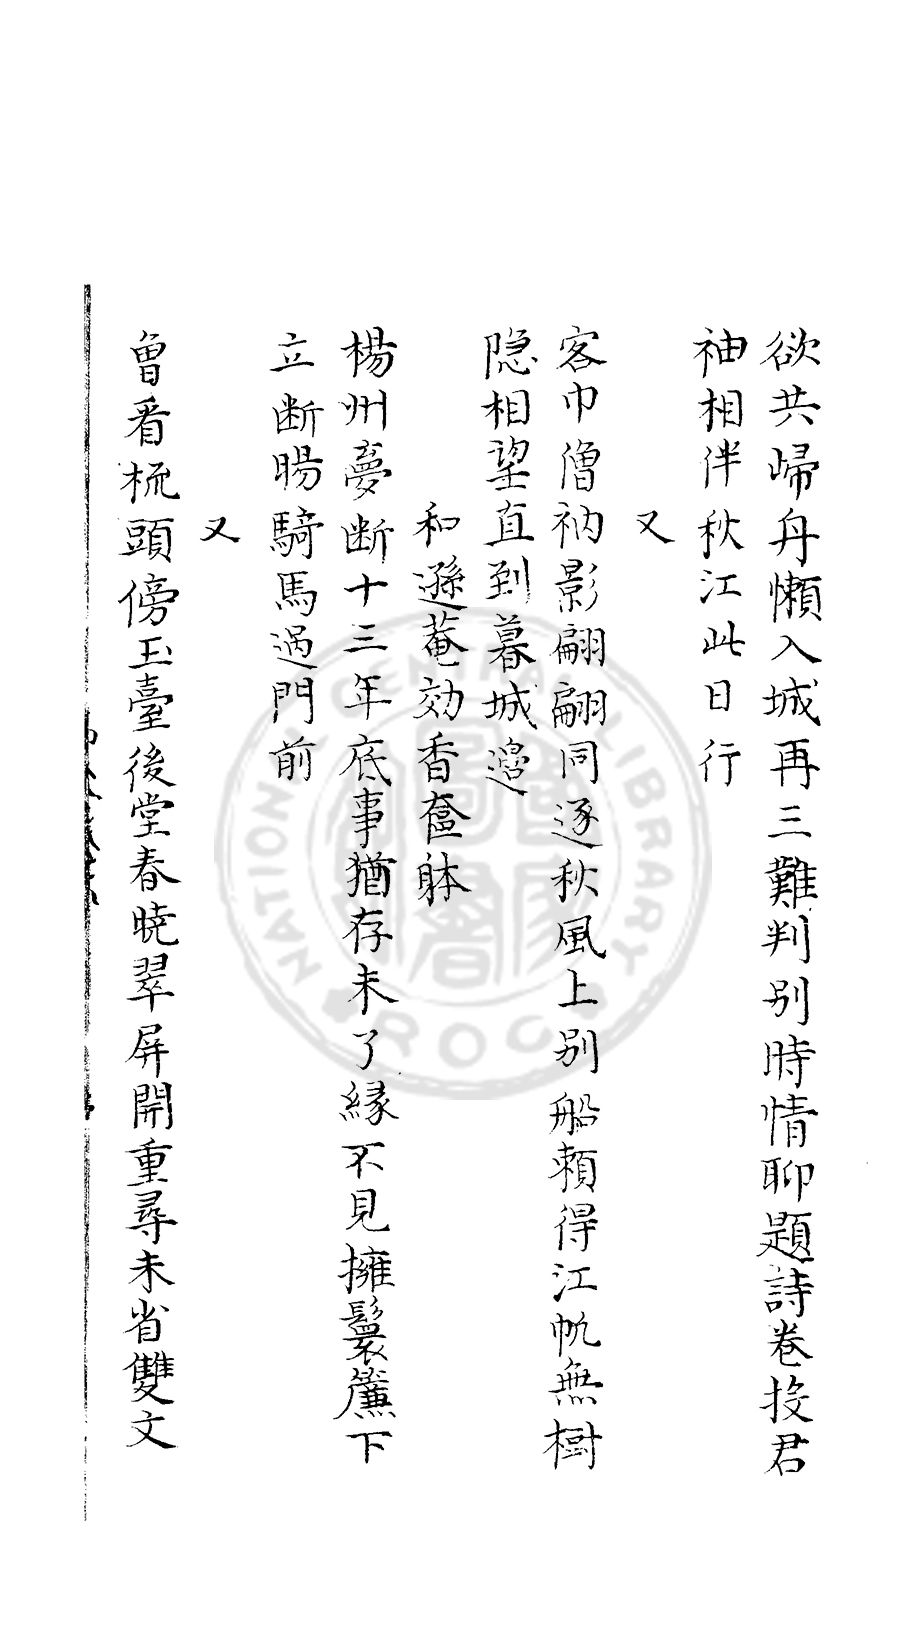 欲共歸舟懶入城再三難判别時情聊題詩卷投君
袖相伴秋江此日行
又
客巾僧衲影翩翩同逐秋風上别船頼得江帆無樹
隐相望直到暮城邉
和遜菴効香奩躰
楊州夢断十三年底事猶存未了縁不見擁鬟簾下
立断腸騎馬過門前
又
曾看梳頭傍玉臺後堂春曉翠屏開重尋未省雙文
NATIONAL CENTRAL LIBRARY
ROC